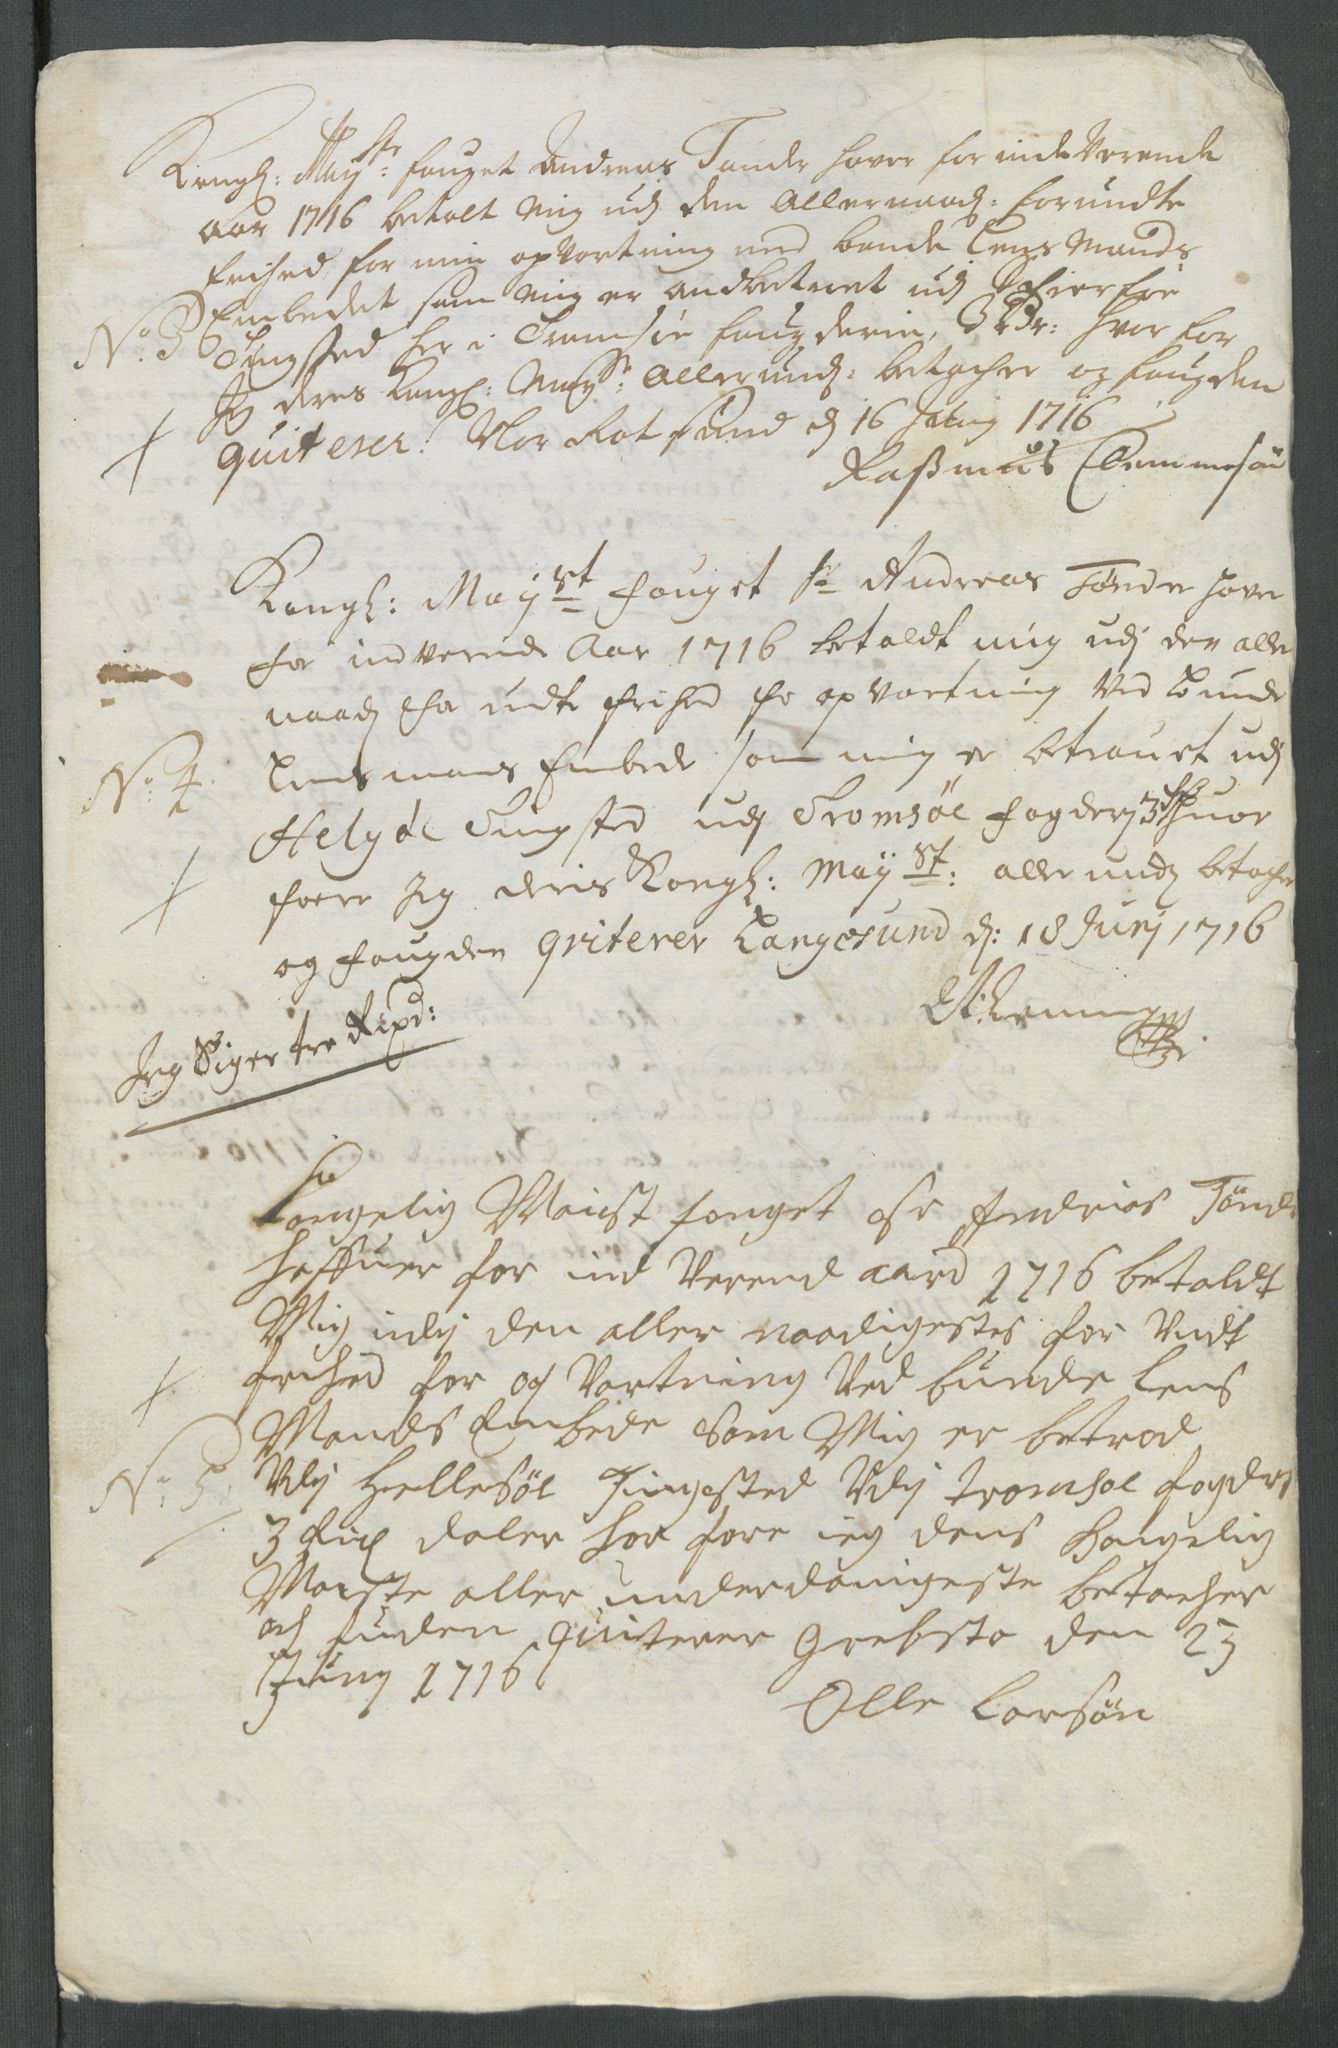 Kongl: Mayst: fouget Andreas Tønder hover for inde Verende
aar 1716 betalt Mig udj den Allernaad: forundte
frihed, for min opVortning ved bonde Lens Mands
Embedet som Mig er andbetroet udj
No. 3 Tingsted her i Tromsøe fougderie, 3 Rdr: hvor for
Jeg deres Kongl: Mayst: Allerund: betacher og fougden
quiterer. Nor Rotsund d 16 Juny 1716
Rasmus Clemmesøn
Kongl: Mayst fouget Sr Andreas Tønder haver
for indverende Aar 1716 betaldt mig udj den aller
naad for undte frihed for opVortning Ved bunde
No. 4. Lensmans Embede som mig er betrouet udj
Helgøe Tingsted udj Tromsøe fogderj 3 Rd huor
forre Jeg deris Kongl: Mayst: allerund betacher
og fougden qviterer Langesund d: 18 Junj 1716
Jeg Siger tre Rixd:
Kongelig Maiest fouget Sr Andrias Tønder
haffuer for ind Verend aard 1716 betaldt
Mig udj den aller naadigestes for Undt
frihed for op Vartning Ved bunde Lens
Mands Embede som Mig er betrod
No. 5. Udj Hellesøe Tingested Udj tromsøe fogdrj
3 Rix daler hor fore ieg dens Kongelig
Maieste aller underdanigeste betacher
och fuden quiterer Grebsto den 23
Juny 1716
Olle Larsøn